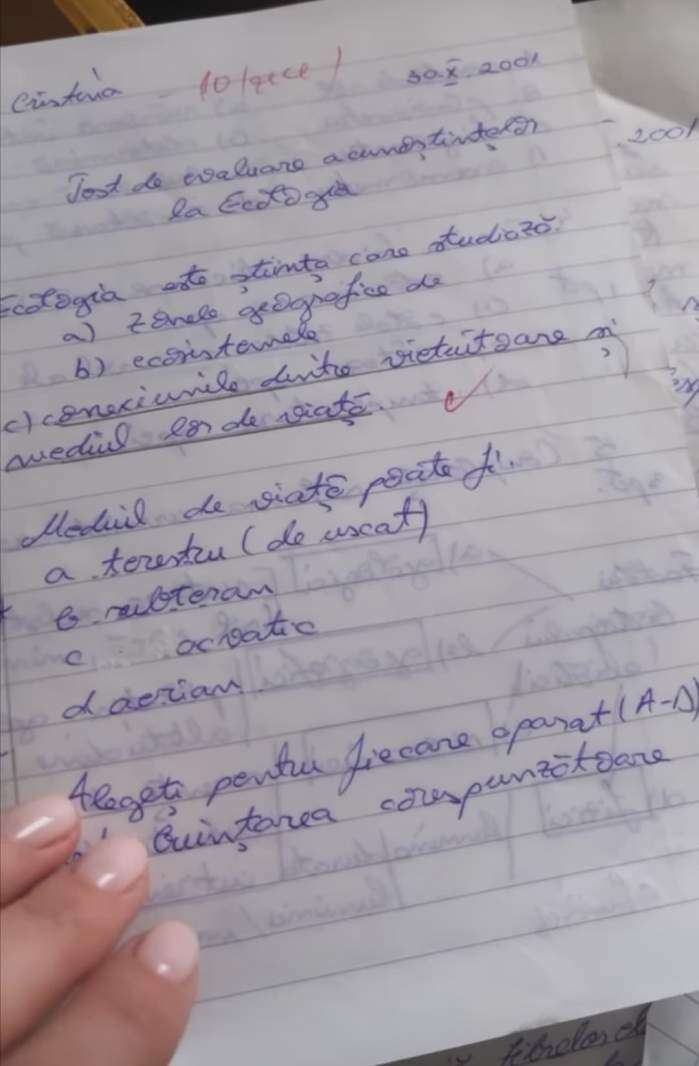 Cristina - 10 /zece/ 30.X.2001
Test de evaluare a cunoștințelor
la Ecologia
2001
Ecologia este știința care studiază
a) zonele geografice de
b) ecosistemele
c) conexiunile dintre viețuitoare și
mediul lor de viață.
Mediul de viață poate fi.
a. terestru (de uscat)
b. subteran
c. acvatic
d. aerian
Alegeți pentru fiecare aparat (A-D)
cuințarea corespunzătoare